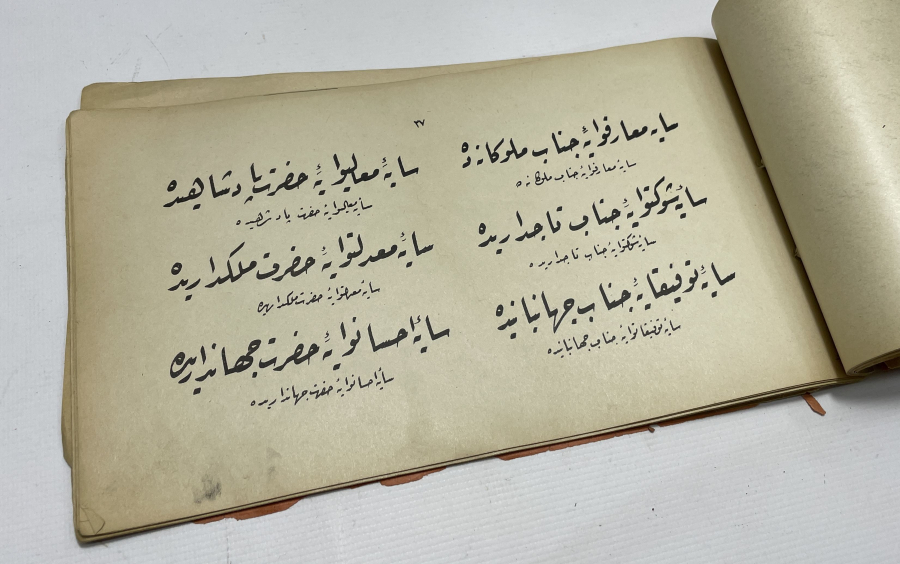 ٣٧
سایۀ معارفوایۀ جناب ملوکانه ده
سایۀ معارفوایۀ جناب ملوکانه ده
سایۀ شوکتوایۀ جناب تاجداریده
سایۀ شوکتوایۀ جناب تاجداریده
سایۀ توفیقایۀ جناب جهانبانیده
سایۀ توفیقانوایۀ جناب جهانبانیده
سایۀ معالیوایۀ حضرت پادشاهیده
سایۀ معالیوایۀ حضرت پادشاهیده
سایۀ معدلتوایۀ حضرت ملکداریده
سایۀ معدلتوایۀ حضرت ملکداریده
سایۀ احسانوایۀ حضرت جهانداریده
سایۀ احسانوایۀ حضرت جهانداریده